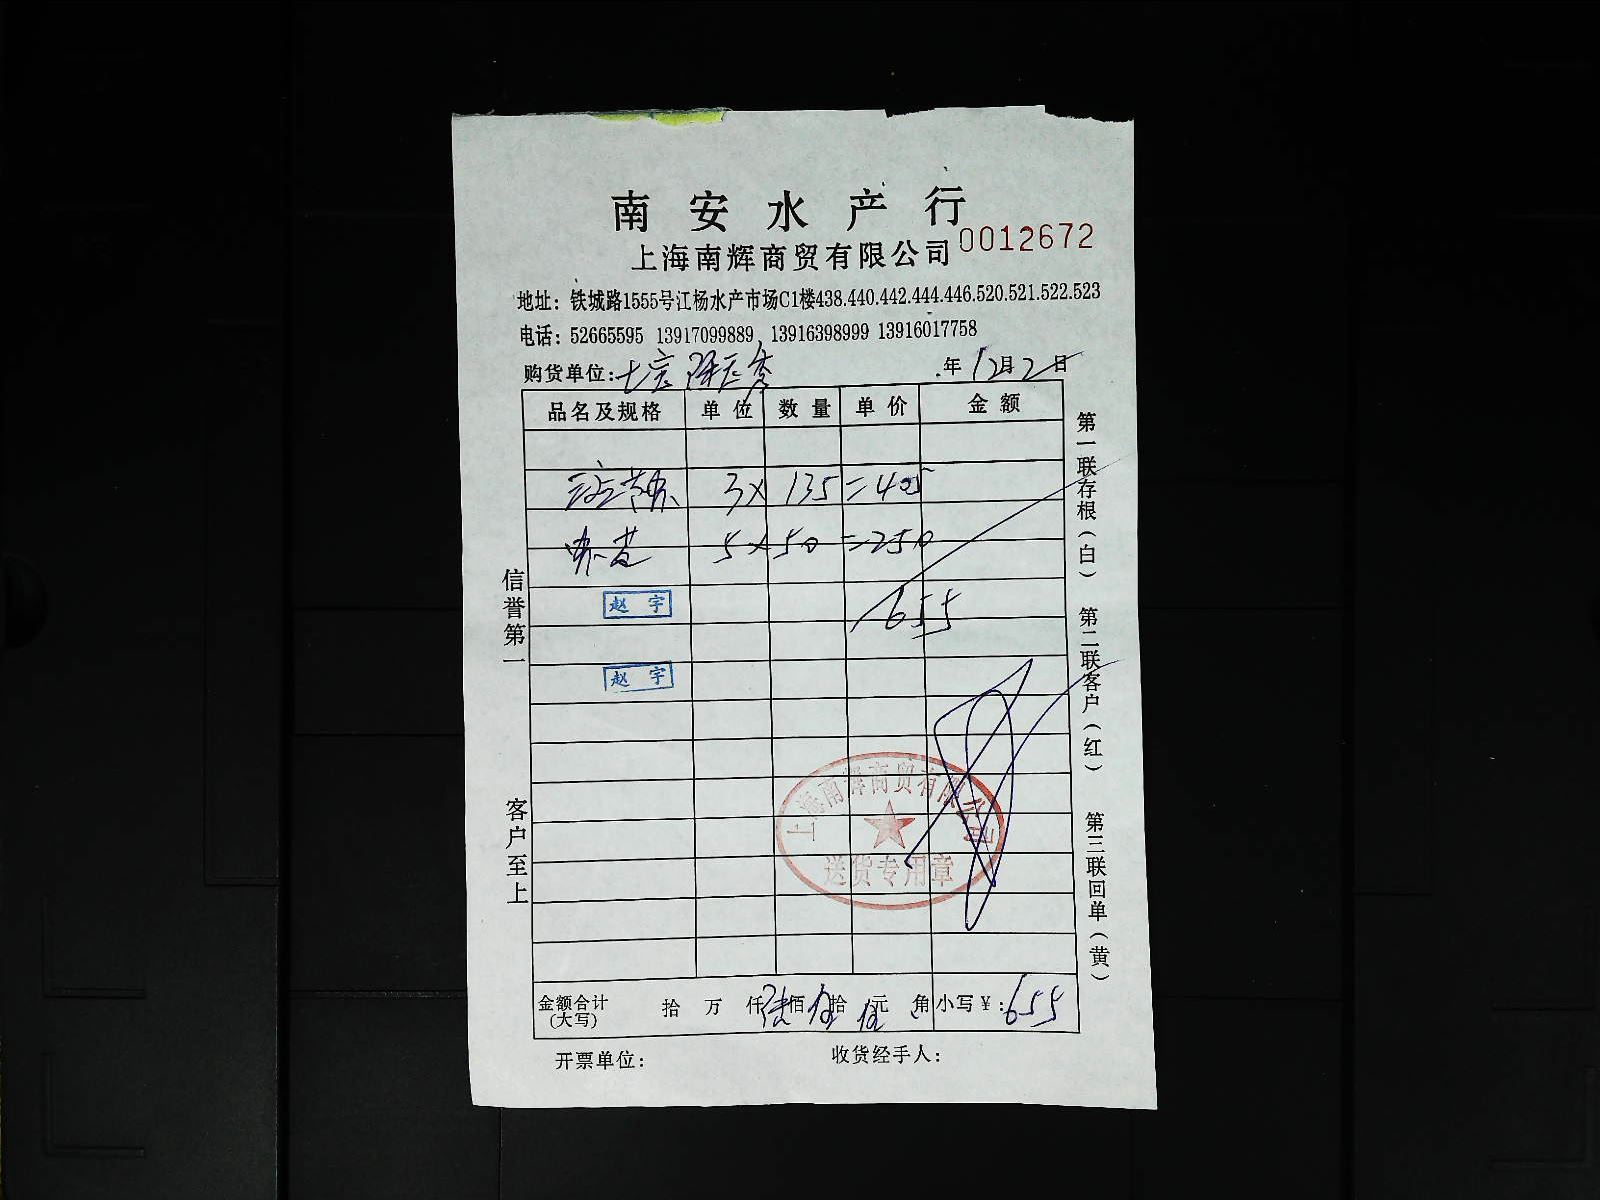 南安水产行
上海南辉商贸有限公司 0012672
地址：铁城路1555号江杨水产市场C1楼438.440.442.444.446.520.521.522.523
电话：52665595 13917099889，13916398999 13916017758
购货单位： 年12月2日
品名及规格 单位 数量 单价 金额
3× 135 =405
5×50 =250
赵宇
655
赵宇
上海南辉商贸有限公司
送货专用章
金额合计(大写) 拾 万 仟陆佰伍拾伍元 角 小写¥：655
开票单位： 收货经手人：
信誉第一
客户至上
第一联存根（白）
第二联客户（红）
第三联回单（黄）